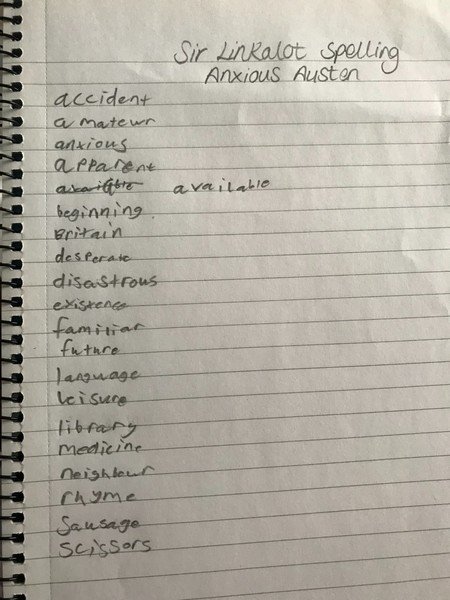 Sir Linkalot Spelling
Anxious Austen
accident
amateur
anxious
apparent
available
beginning.
Britain
desperate
disastrous
existence
familiar
future
language
leisure
library
medicine
neighbour
rhyme
Sausage
scissors